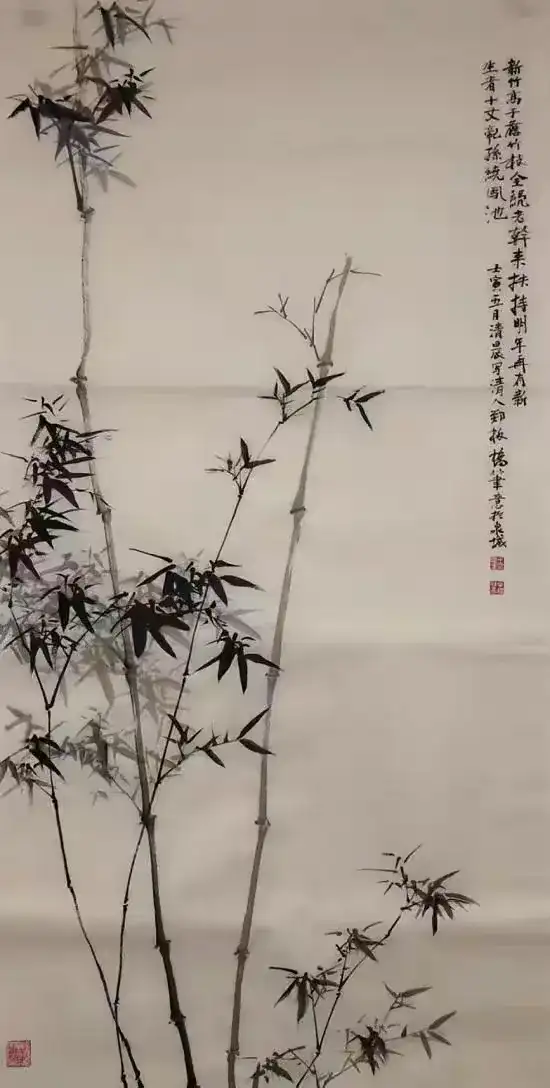 新竹高于舊竹枝全憑老幹來扶持明年再有新
生者十丈龍孫繞鳳池
壬寅五月清晨写清人鄭板橋筆意於泉城